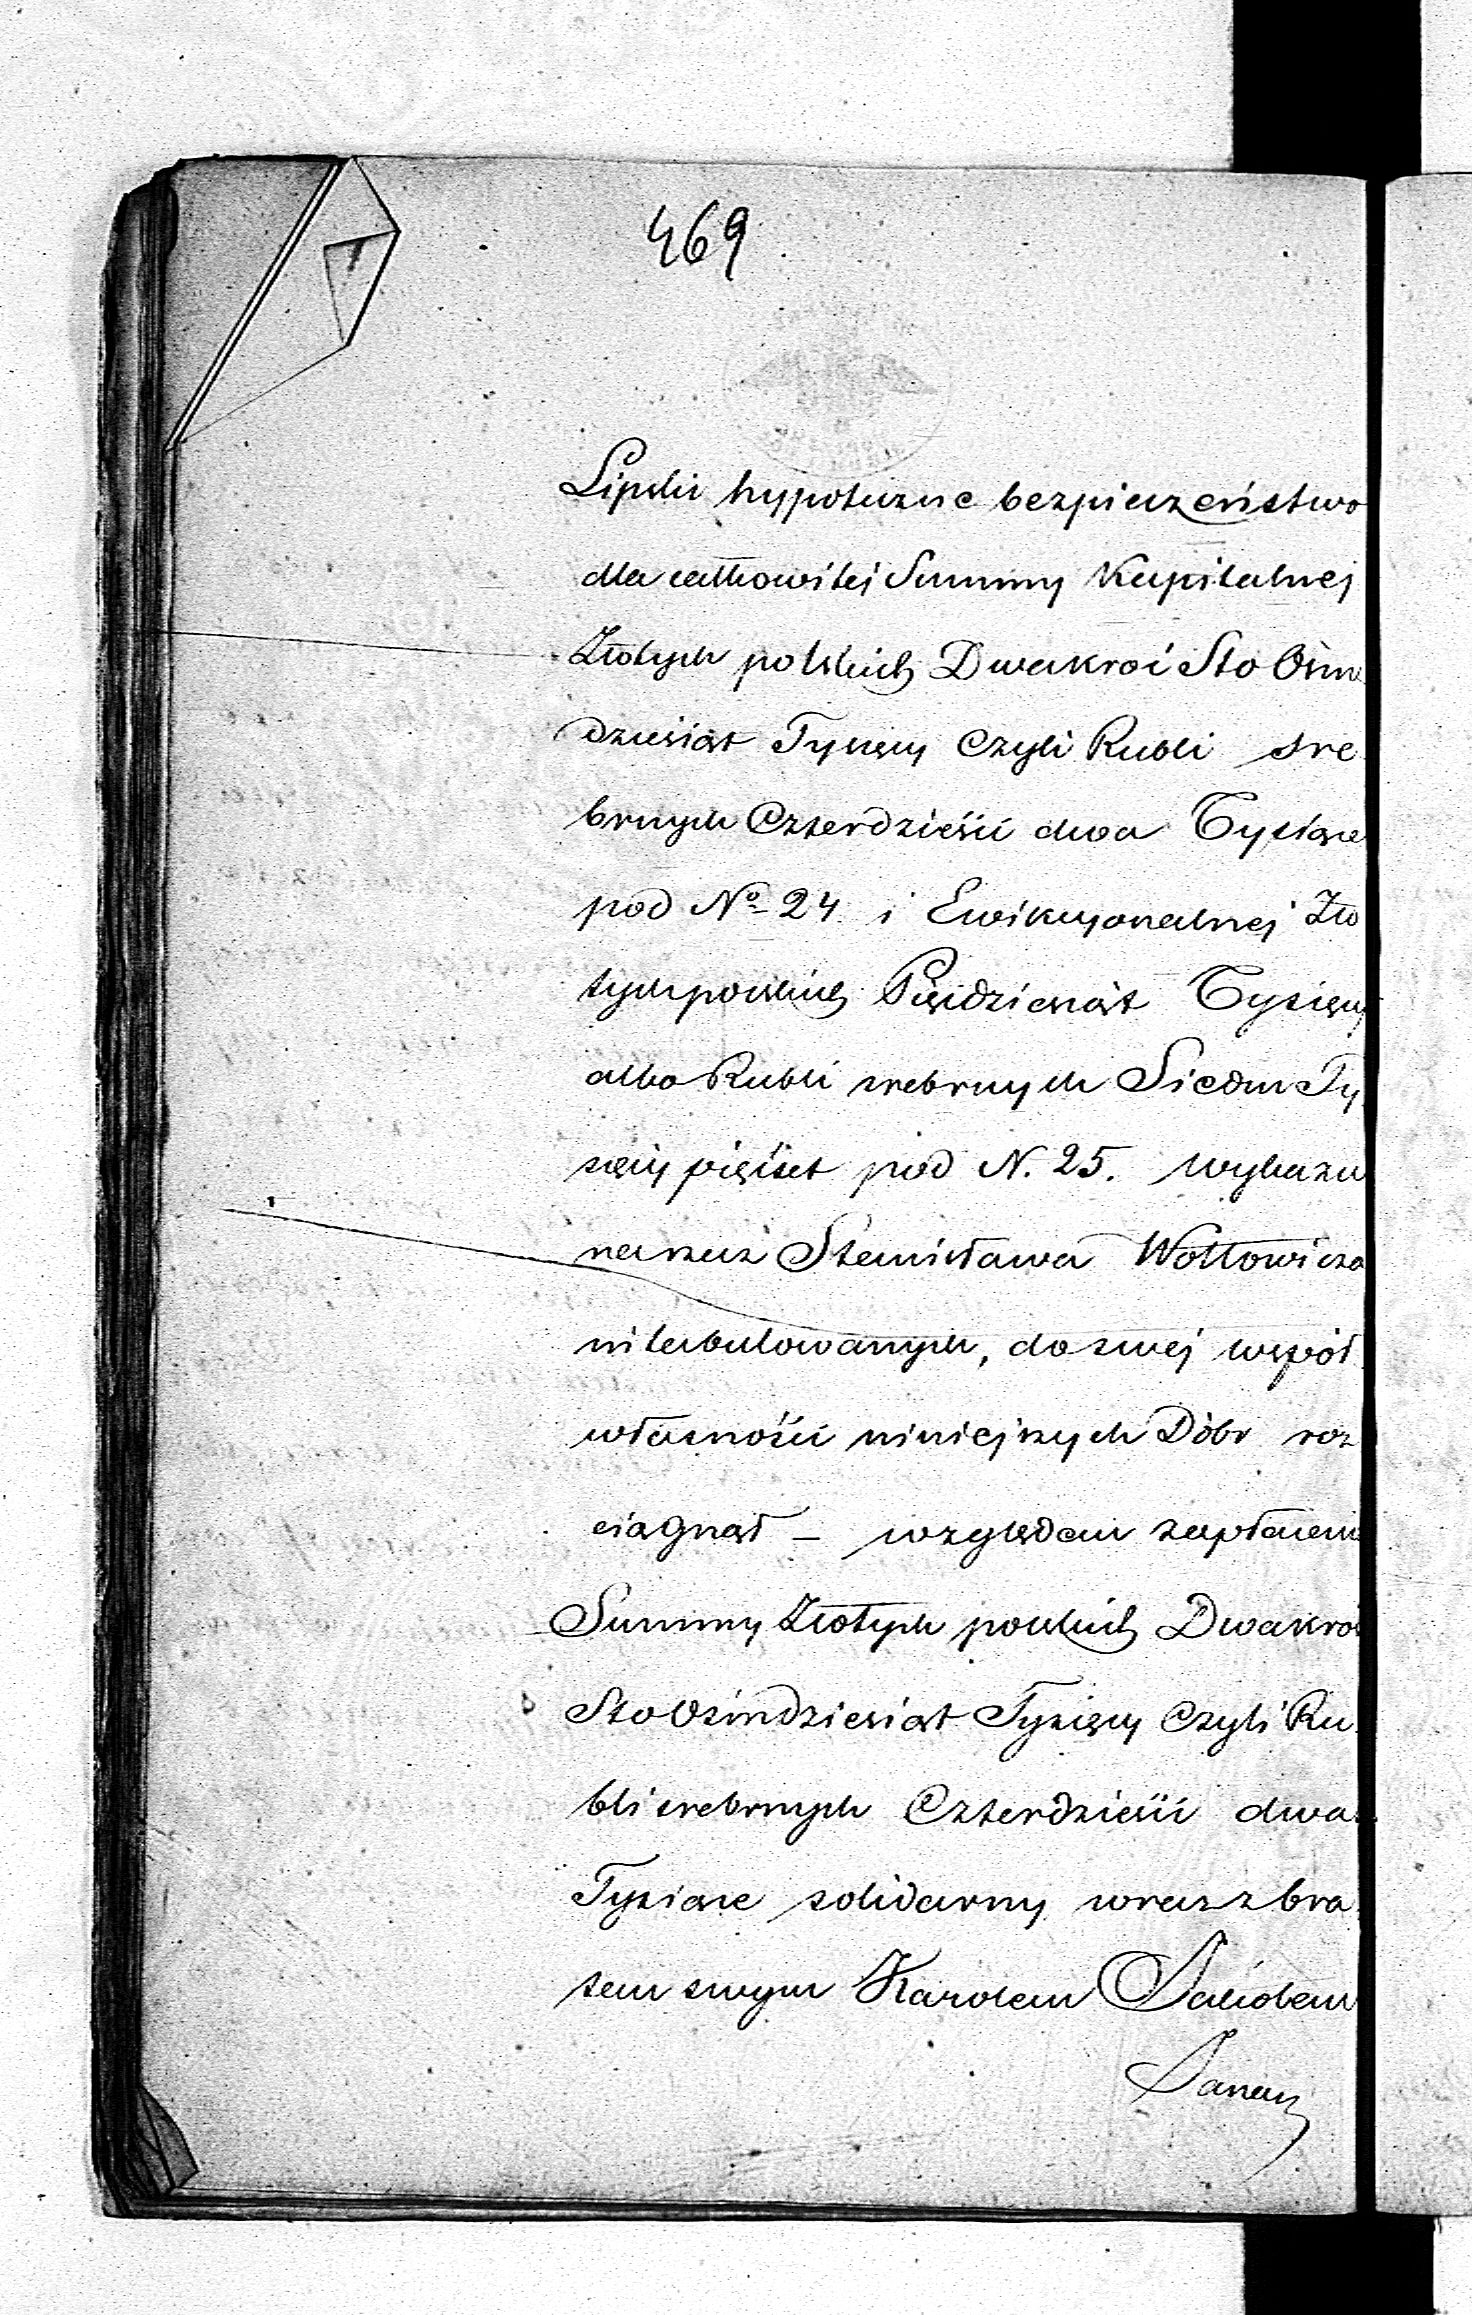 469
Lipski hypoteczne bezpieczeństwo
dla całkowitej Summy Kapitalnej
Złotych polskich Dwakroć Sto Ośm
dziesiąt Tysięcy czyli Rubli sre
brnych Czterdzieści dwa Tysiące
pod No 24 i Ewikcyonalnej Zło
tych polskich Pięćdziesiąt Tysięcy
albo Rubli srebrnych Siedm Ty
sięcy pięćset pod N. 25. wykazu
na rzecz Stanisława Wołłowicza
intabulowanych, do swej współ
własności niniejszych Dóbr roz
ciągnął – względem zapłacenia
Summy Złotych polskich Dwakroć
Sto Ośmdziesiąt Tysięcy czyli Ru
bli srebrnych Czterdzieści dwa
Tysiące solidarny wraz z bra
tem swym Karolem Jakóbem